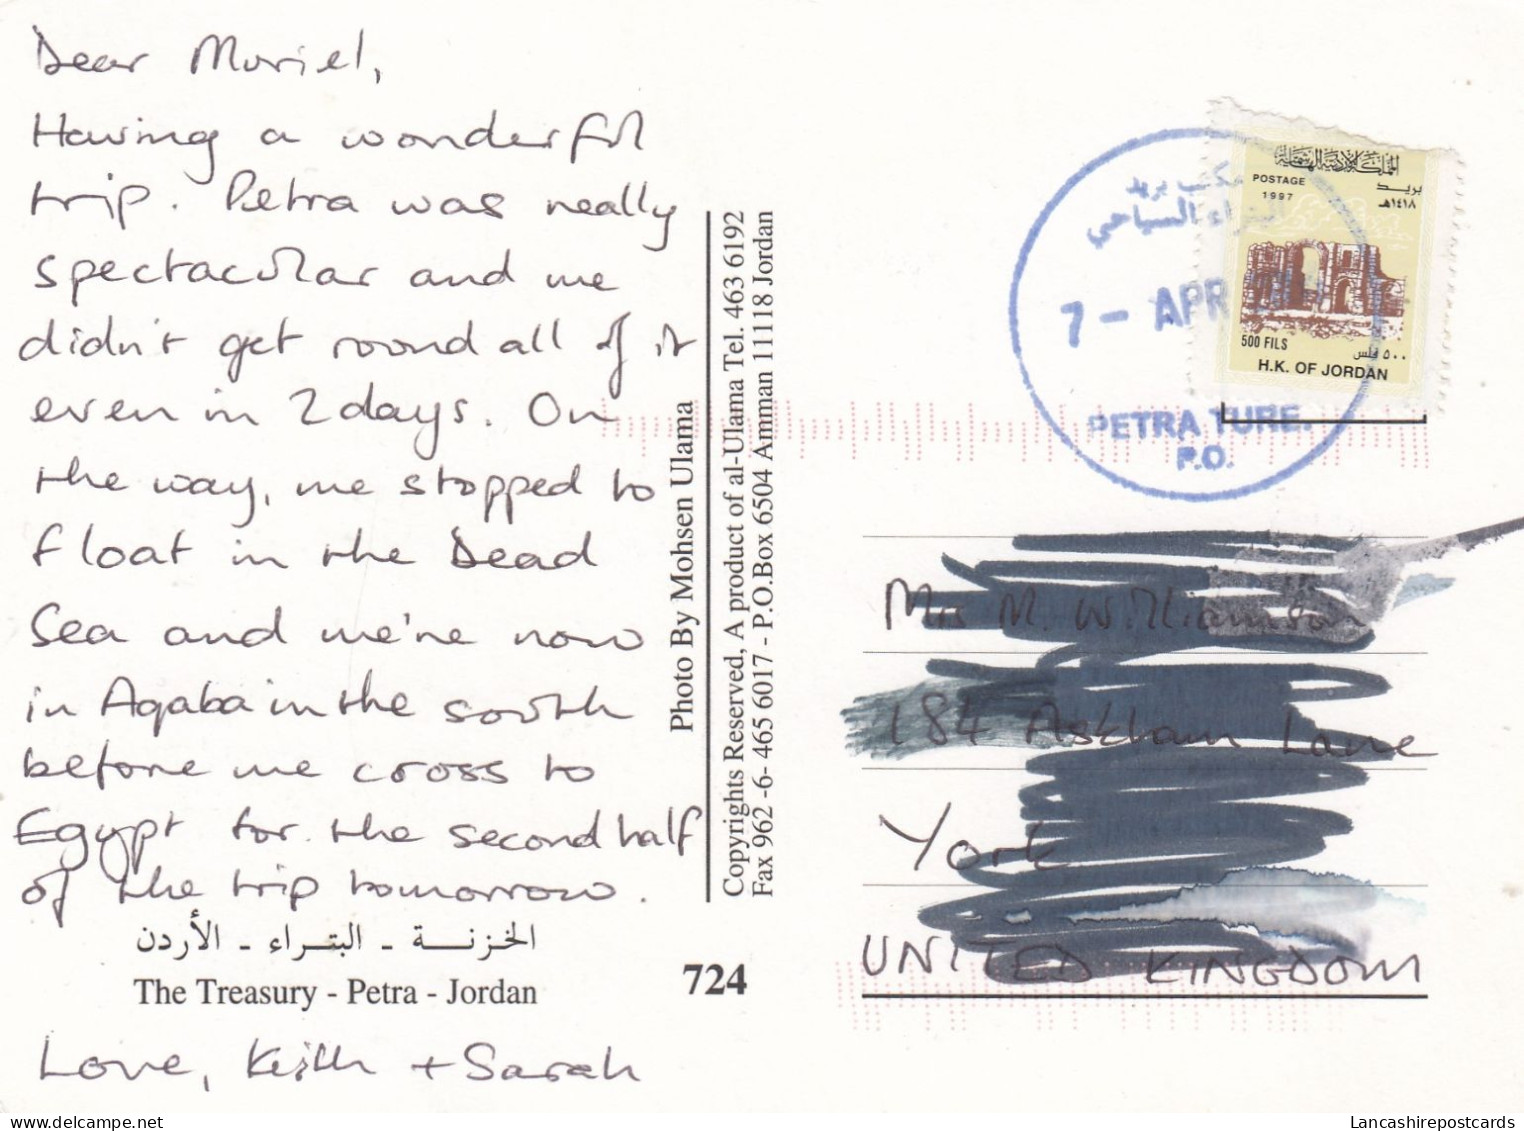 Dear Muriel,
Having a wonderful
trip. Petra was really
spectacular and we
didn't get round all of it
even in 2 days. On
the way, we stopped to
float in the Dead
Sea and we're now
in Aqaba in the south
before we cross to
Egypt for the second half
of the trip tomorrow.
الخزنة - البتراء - الأردن
The Treasury - Petra - Jordan
Love, Keith + Sarah
724
Photo By Mohsen Ulama
Copyrights Reserved, A product of al-Ulama Tel. 463 6192
Fax 962 -6- 465 6017 - P.O.Box 6504 Amman 11118 Jordan
مكتب بريد
البتراء السياحي
7 - APR
PETRA TURE.
P.O.
المملكة الأردنية الهاشمية
POSTAGE بريد
1997 ١٤١٨هـ
500 FILS ٥٠٠ فلس
H.K. OF JORDAN
Mrs M. Williamson
184 Askham Lane
York
UNITED KINGDOM
Lancashirepostcards